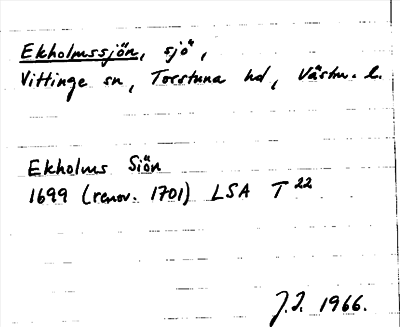 Ekholmssjön, sjö,
Vittinge sn, Torstuna hd, Västm. l.
Ekholms Siön
1699 (renov. 1701) LSA T 22
J.I. 1966.